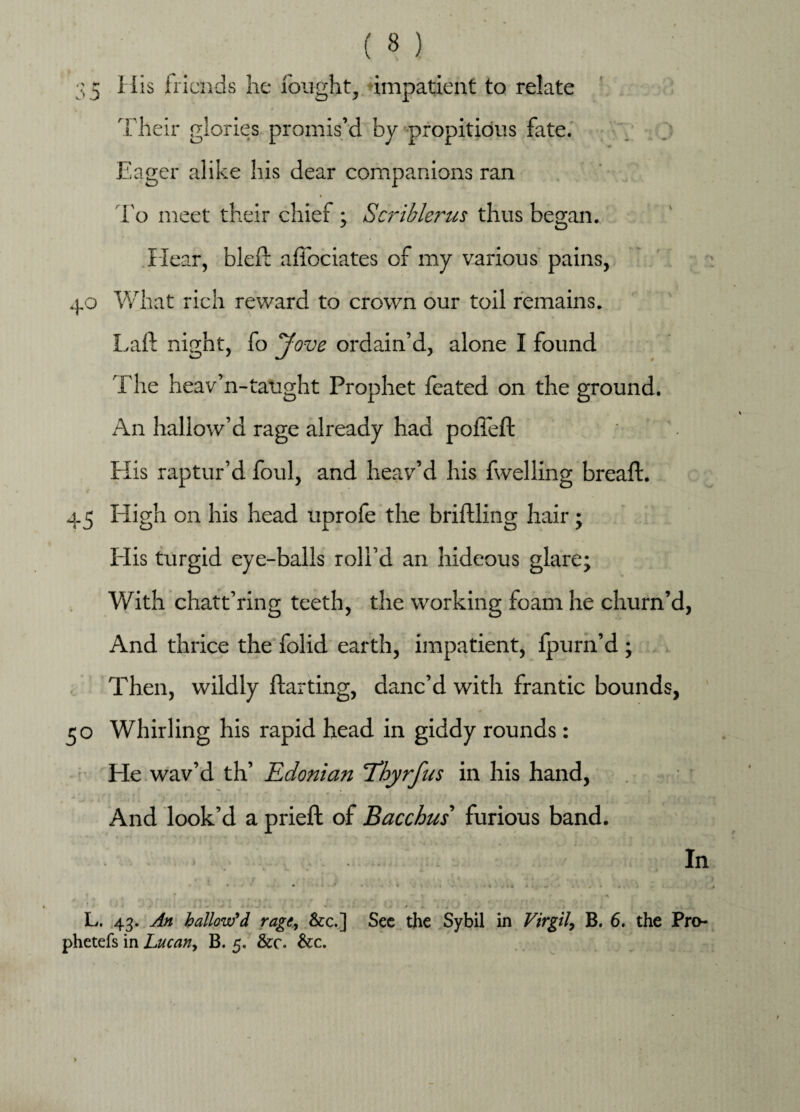 ( 8 )
35 His friends he ſought, impatient to relate
Their glories promis’d by propitious fate.
Eager alike his dear companions ran
To meet their chief ; Scriblerus thus began.
Hear, bleſt aſſociates of my various pains,
40 What rich reward to crown our toil remains.
Laſt night, ſo Jove ordain’d, alone I found
The heav’n-taught Prophet ſeated on the ground.
An hallow’d rage already had poſſeſt
His raptur’d ſoul, and heav’d his ſwelling breaſt.
45 High on his head uproſe the briſtling hair ;
His turgid eye-balls roll’d an hideous glare;
With chatt’ring teeth, the working foam he churn’d,
And thrice the ſolid earth, impatient, ſpurn’d ;
Then, wildly ſtarting, danc’d with frantic bounds,
50 Whirling his rapid head in giddy rounds :
He wav’d th’ Edonian Thyrſus in his hand,
And look’d a prieſt of Bacchus’ furious band.
In
L. 43. An hallow’d rage, &c.] See the Sybil in Virgil, B. 6. the Pro-
pheteſs in Lucan, B. 5. &c. &c.